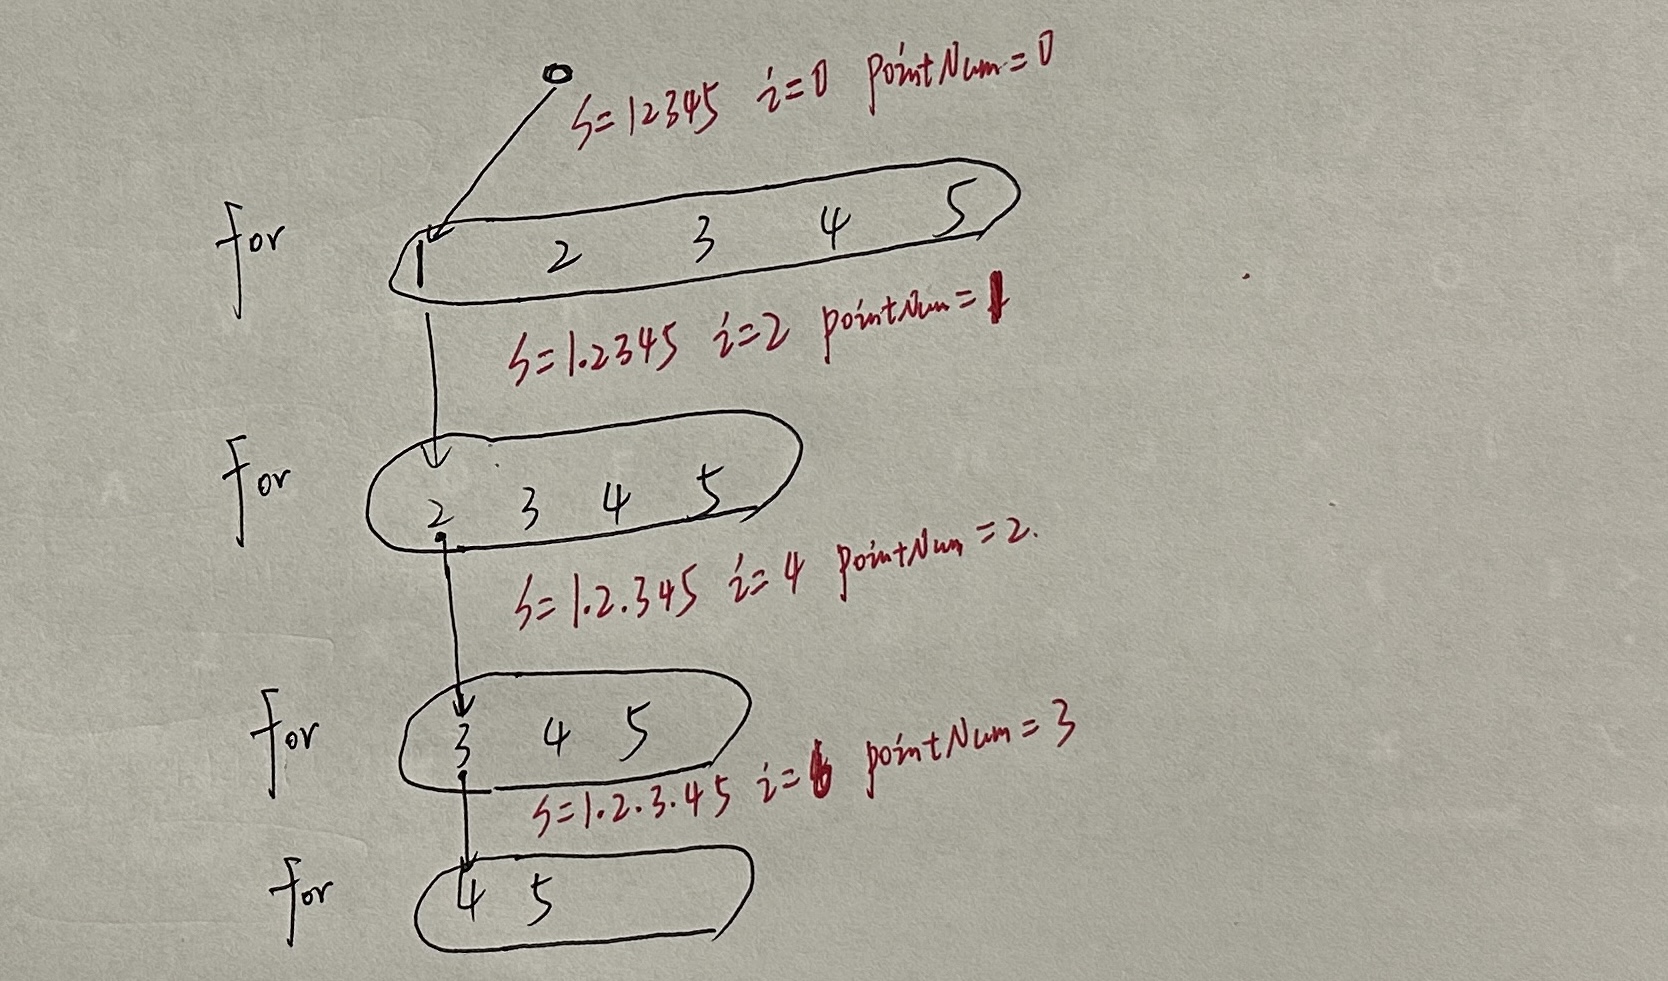 S=12345 i=0 pointNum=0
for 1 2 3 4 5
S=1.2345 i=2 pointNum=1
for 2 3 4 5
S=1.2.345 i=4 pointNum=2.
for 3 4 5
S=1.2.3.45 i=6 pointNum=3
for 4 5